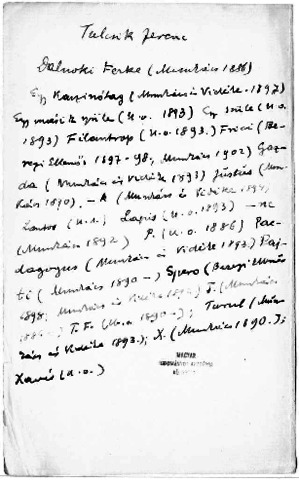 Tulcsik Ferenc
Dalnoki Ferke (Munkács 1886)
Egy Kaszinótag (Munkács és Vidéke 1897)
Egy másik szülő (U.o. 1893) Egy szülő (U.o.
1893) Filantrop (U.o. 1893.) Frici (Be-
regi Ellenőr 1897-98, Munkács 1902) Gaz-
da (Munkács és Vidéke 1893) Justus (Mun-
kács 1890). –k (Munkács és Vidéke 1894)
(U.o.) Lapis (U.o. 1893) –nc
(Munkács 1892) P. (U.o. 1886) Pae-
dagogus (Munkács és Vidéke 1893.) Paj-
ti (Munkács 1890–) Spero (Beregi Ellenőr
1898; Munkács és Vidéke T. (Munkács
T.F. (U.o. 1890–); Turul (Mun-
kács és Vidéke 1893.); X. (Munkács 1890.);
(U.o.)
MAGYAR
TUDOMÁNYOS AKADÉMIA
KÖNYVTÁRA